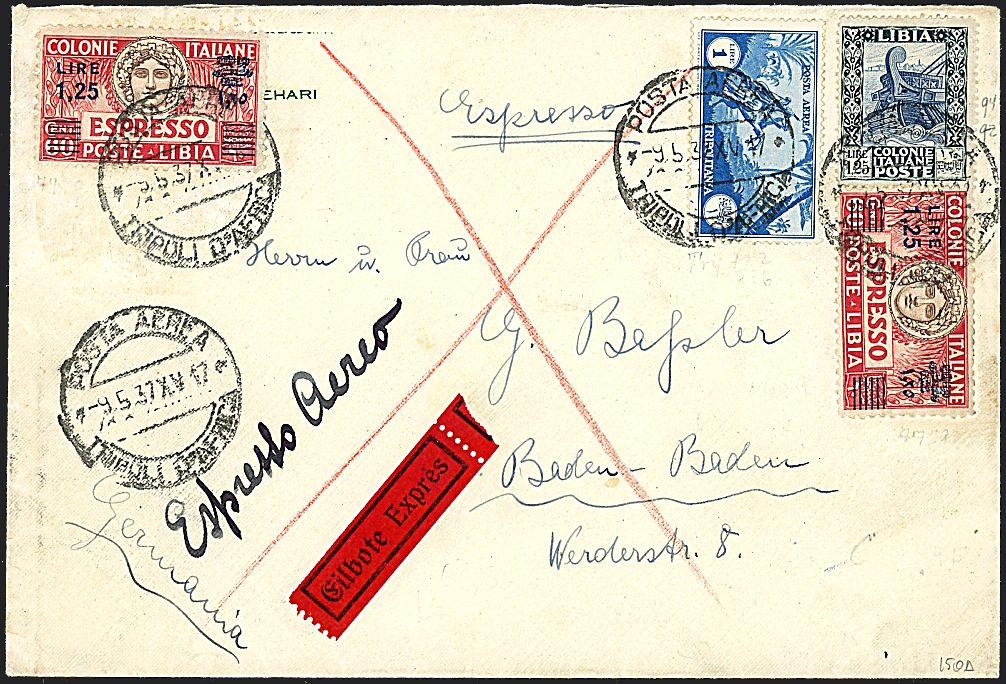 COLONIE ITALIANE
LIRE
1,25
ESPRESSO
POSTE LIBIA
EHARI
Espresso
POSTA AEREA
-9.5.37.XV
TRIPOLI D'AFRICA
1
LIRE
POSTA AEREA
TRIPOLITANIA
LIBIA
LIRE
1.25
COLONIE
ITALIANE
POSTE
COLONIE ITALIANE
LIRE
1,25
ESPRESSO
POSTE LIBIA
POSTA AEREA
-9.5.37.XV
TRIPOLI D'AFRICA
Herrn u. Frau
G. Beßler
Baden-Baden
Werderstr. 8.
POSTA AEREA
-9.5.37.XV
TRIPOLI D'AFRICA
Espresso Aereo
Eilbote Exprès
Germania